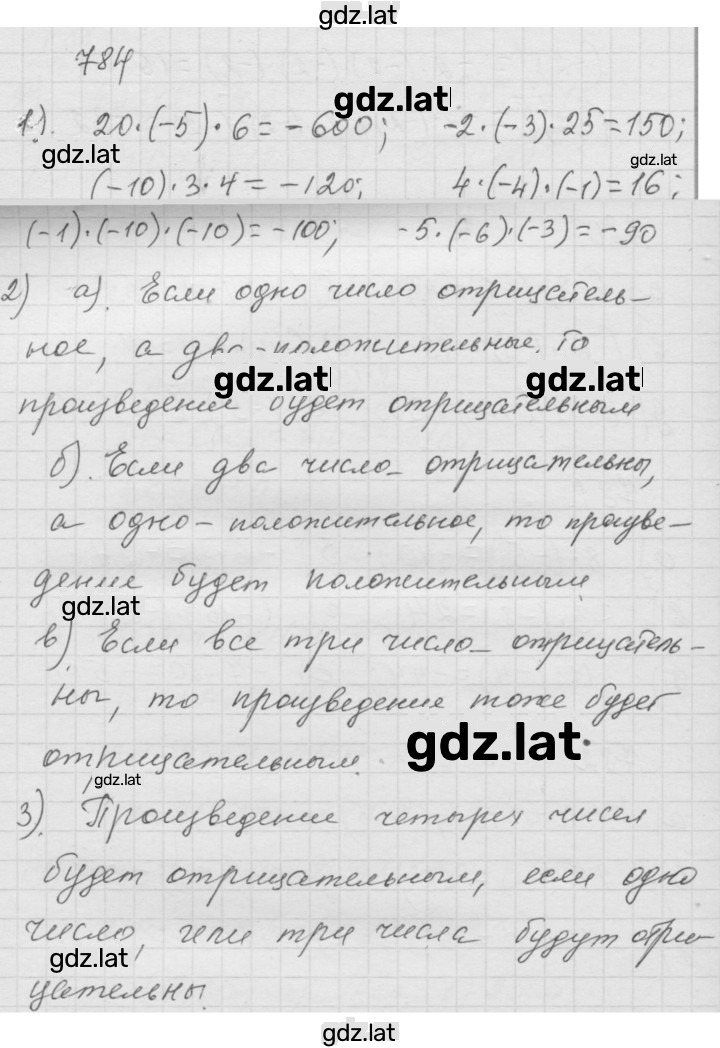 gdz.lat
784
gdz.lat
1). 20·(-5)·6=-600; -2·(-3)·25=150;
gdz.lat gdz.lat
(-10)·3·4=-120; 4·(-4)·(-1)=16;
(-1)·(-10)·(-10)=-100; -5·(-6)·(-3)=-90
2) а). Если одно число отрицатель-
ное, а два-положительные, то
gdz.lat gdz.lat
произведение будет отрицательным
б). Если два число отрицательны,
а одно-положительное, то произве-
дение будет положительным
gdz.lat
в). Если все три число отрицатель-
ны, то произведение тоже будет
gdz.lat
отрицательным.
gdz.lat
3). Произведение четырех чисел
будет отрицательным, если одно
число, или три числа будут отри-
gdz.lat
цательны.
gdz.lat